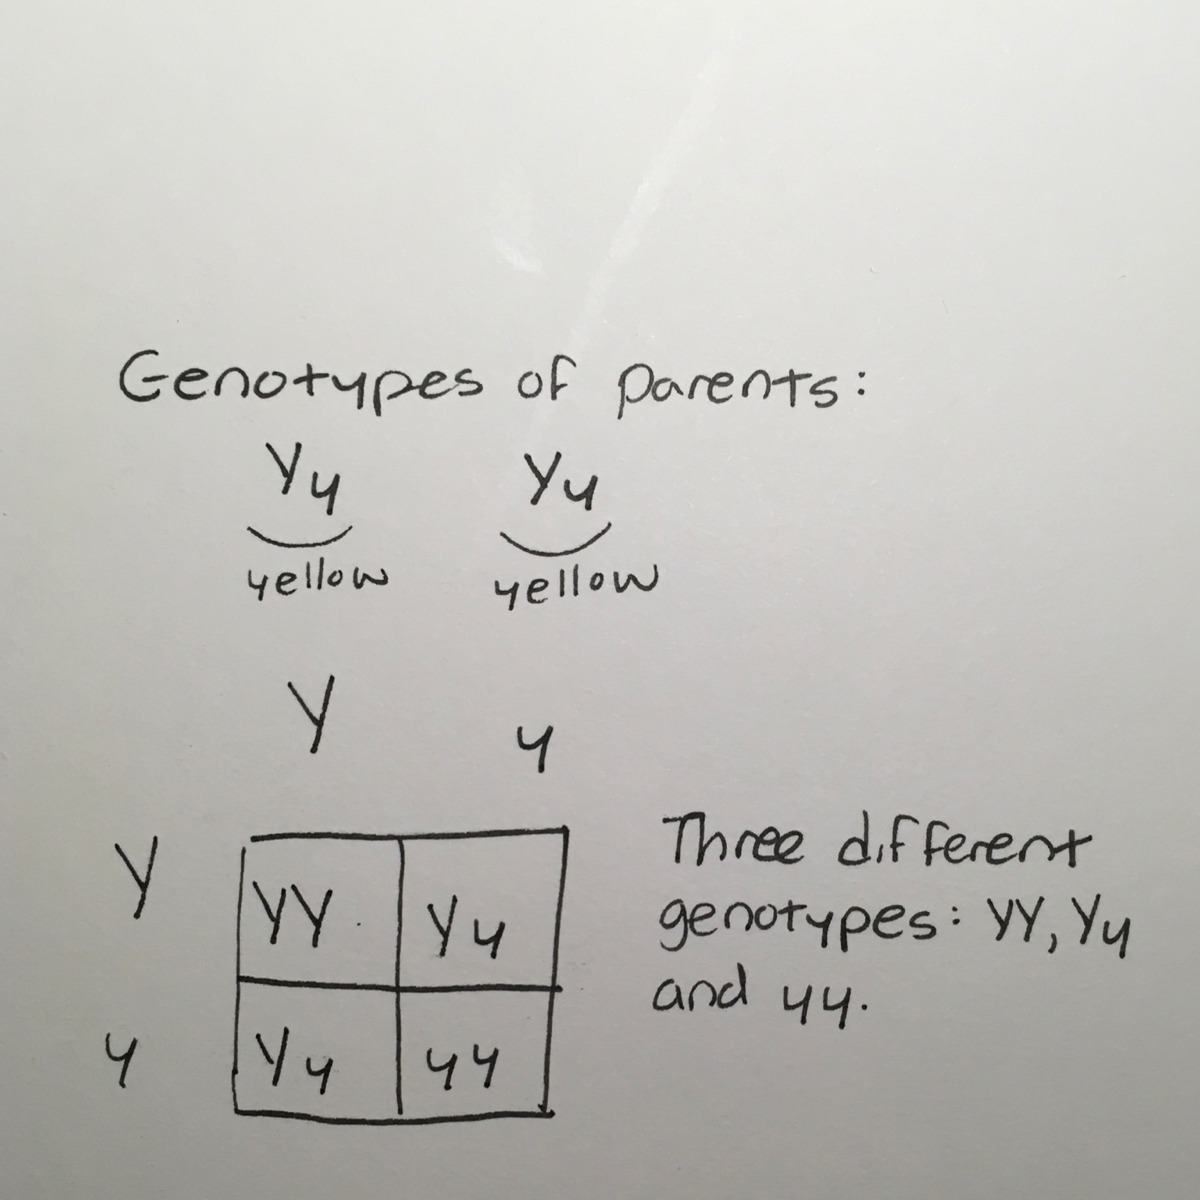 Genotypes of parents:
Yy Yy
yellow yellow
Y y
Y YY Yy
y Yy yy
Three different
genotypes: YY, Yy
and yy.